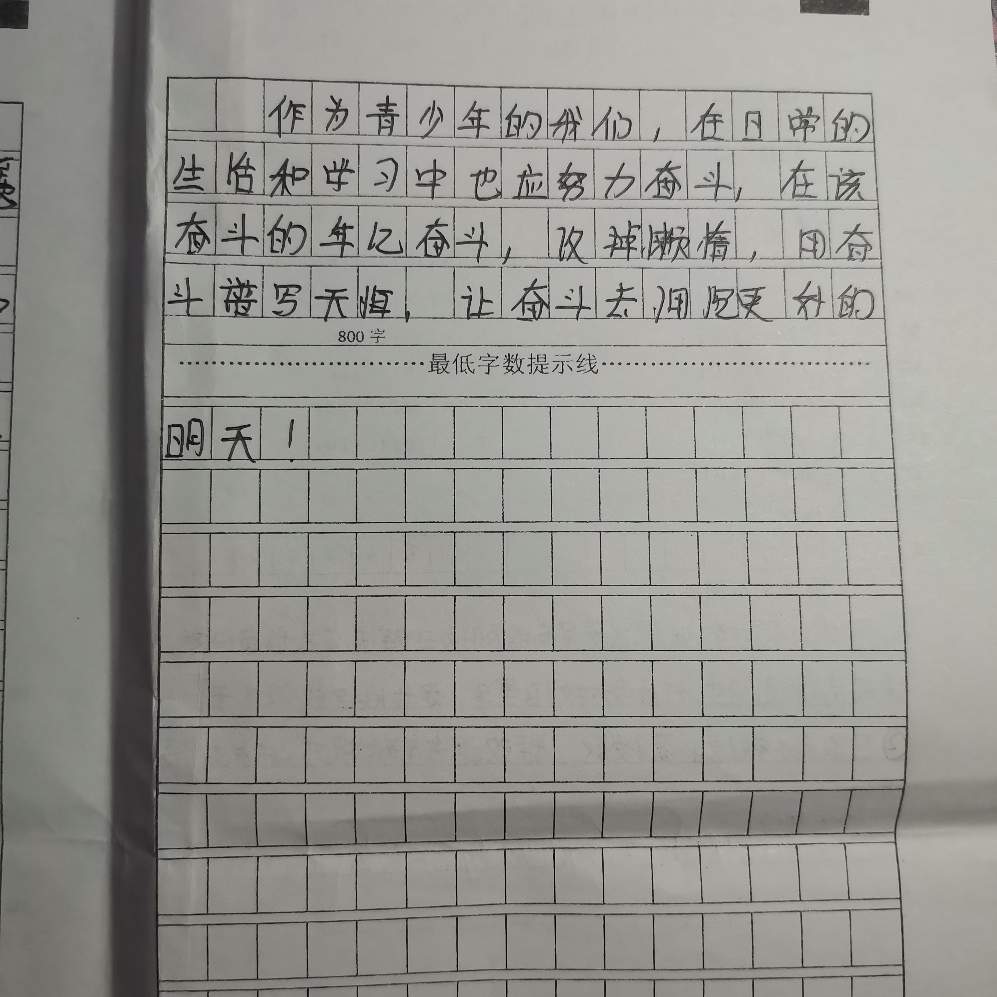 作为青少年的我们，在日常的
生活和学习中也应努力奋斗，在该
奋斗的年亿奋斗，改掉懒惰，用奋
斗谱写无悔，让奋斗去拥抱更好的
800字
最低字数提示线
明天！